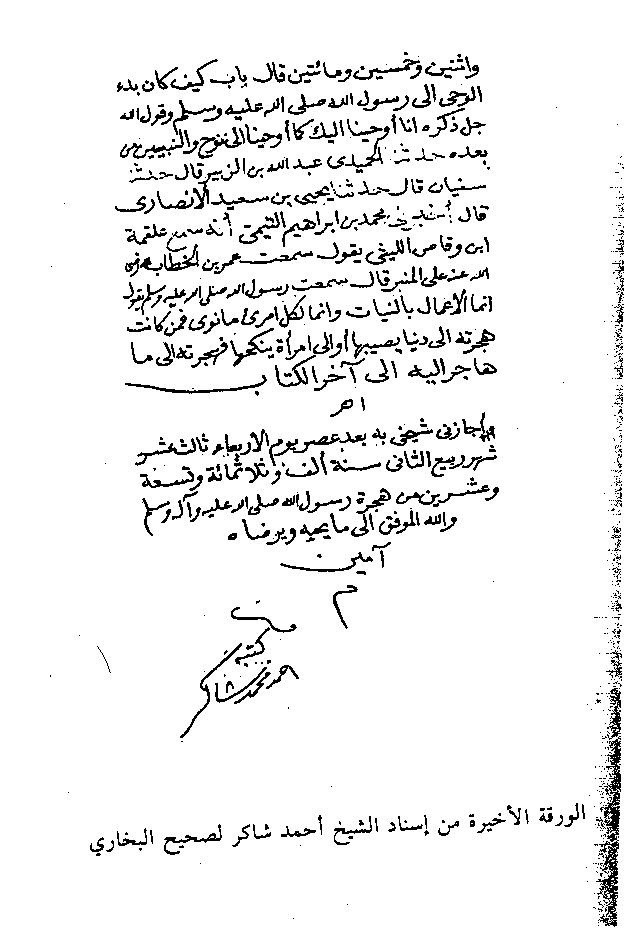 واثنين وخمسين ومائتين قال باب كيف كان بدء
الوحى الى رسول الله صلى الله عليه وسلم وقول الله
جل ذكره انا أوحينا اليك كما أوحينا الى نوح والنبيين من
بعده حدثنا الحميدى عبد الله بن الزبير قال حدثنا
سفيان قال حدثنا يحيى بن سعيد الأنصارى
قال أخبرنى محمد بن ابراهيم التيمى أنه سمع علقمة
ابن وقاص الليثى يقول سمعت عمر بن الخطاب رضى
الله عنه على المنبر قال سمعت رسول الله صلى الله عليه وسلم يقول
انما الأعمال بالنيات وانما لكل امرئ ما نوى فمن كانت
هجرته الى دنيا يصيبها أو الى امرأة ينكحها فهجرته الى ما
هاجر اليه الى آخر الكتاب
اهـ
أجازنى شيخى به بعد عصر يوم الأربعاء ثالث عشر
شهر ربيع الثانى سنة ألف وثلاثمائة وتسعة
وعشرين من هجرة رسول الله صلى الله عليه وآله وسلم
والله الموفق الى ما يحبه ويرضاه
آمين
م
كتبه
احمد محمد شاكر
الورقة الأخيرة من إسناد الشيخ أحمد شاكر لصحيح البخاري